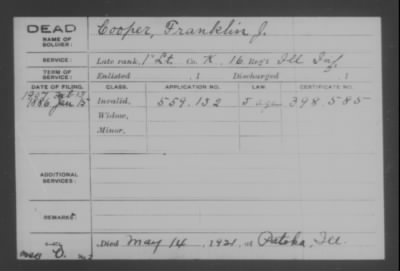 DEAD
NAME OF SOLDIER:
Cooper, Franklin J.
SERVICE:
Late rank, 1" Lt. Co. K, 16 Reg't Ill Inf.
TERM OF SERVICE:
Enlisted , 1 Discharged , 1
DATE OF FILING. CLASS. APPLICATION NO. LAW. CERTIFICATE NO.
1907
1886 Jan 15 Invalid, 559.132 398.585
Widow,
Minor,
ADDITIONAL SERVICES:
REMARKS:
Died May 14, 1921, at Patoka, Ill.